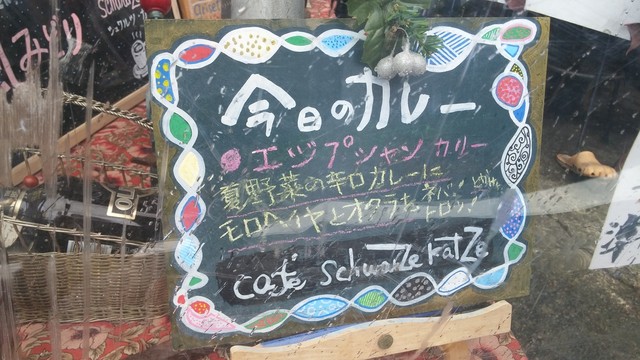 今日のカレー
エジプシャンカリー
夏野菜の辛口カレーに
モロヘイヤとオクラを
トロッ!
café Schwarze Katze